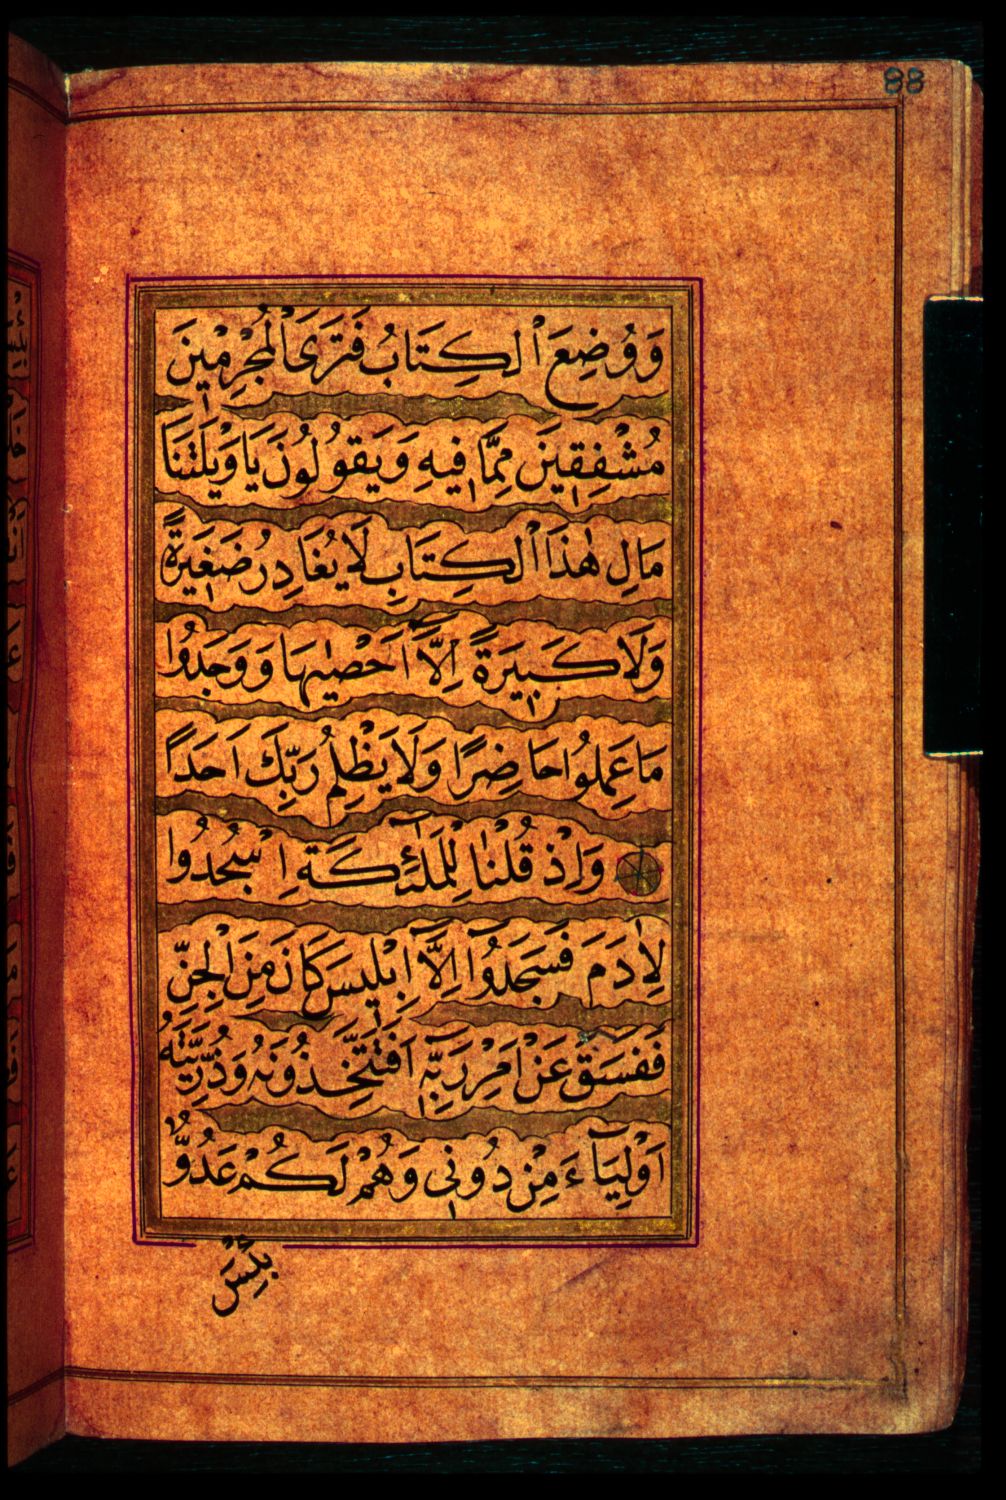 88
وَوُضِعَ اْلكِتَابُ فَتَرَى اْلمُجْرِمٖينَ
مُشْفِقٖينَ مِمَّا فٖيهِ وَيَقوُلُونَ يَا وَيْلَتَنَا
مَالِ هٰذَا اْلكِتَابِ لَا يُغَادِرُ صَغٖيرَةً
وَلَا كَبٖيرَةً اِلَّٓا اَحْصٰيهَا وَوَجَدُوا
مَا عَمِلُوا حَاضِرًا وَلَا يَظْلِمُ رَبُّكَ اَحَدًا
وَاِذْ قُلْنَا لِلْمَلٰٓئِكَةِ اسْجُدُوا
لِاٰدَمَ فَسَجَدُٓوا اِلَّٓا اِبْلٖيسَ كَانَ مِنَ الْجِنِّ
فَفَسَقَ عَنْ اَمْرِ رَبِّهٖٓ اَفَتَتَّخِذُونَهُ وَذُرِّيَّتَهُٓ
اَوْلِيَٓاءَ مِنْ دُونٖى وَهُمْ لَكُمْ عَدُوٌّ
بِئْسَ